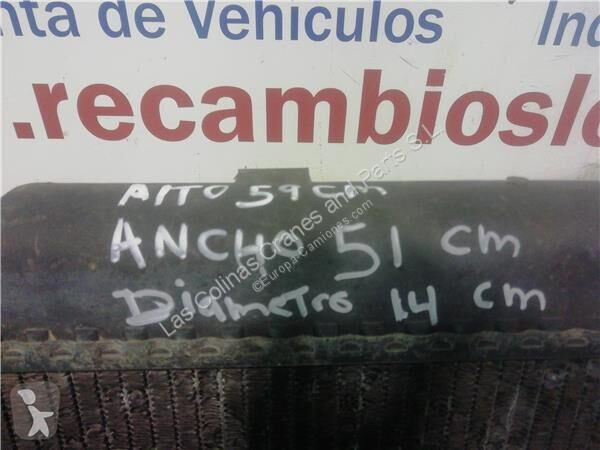 nta de Vehículos Ind
.recambioslc
AlTO 59 cm
ANCHO 51 cm
Diametro 14 cm
Las Colinas cranes and Parts S.L.
©Europa-Camiones.com